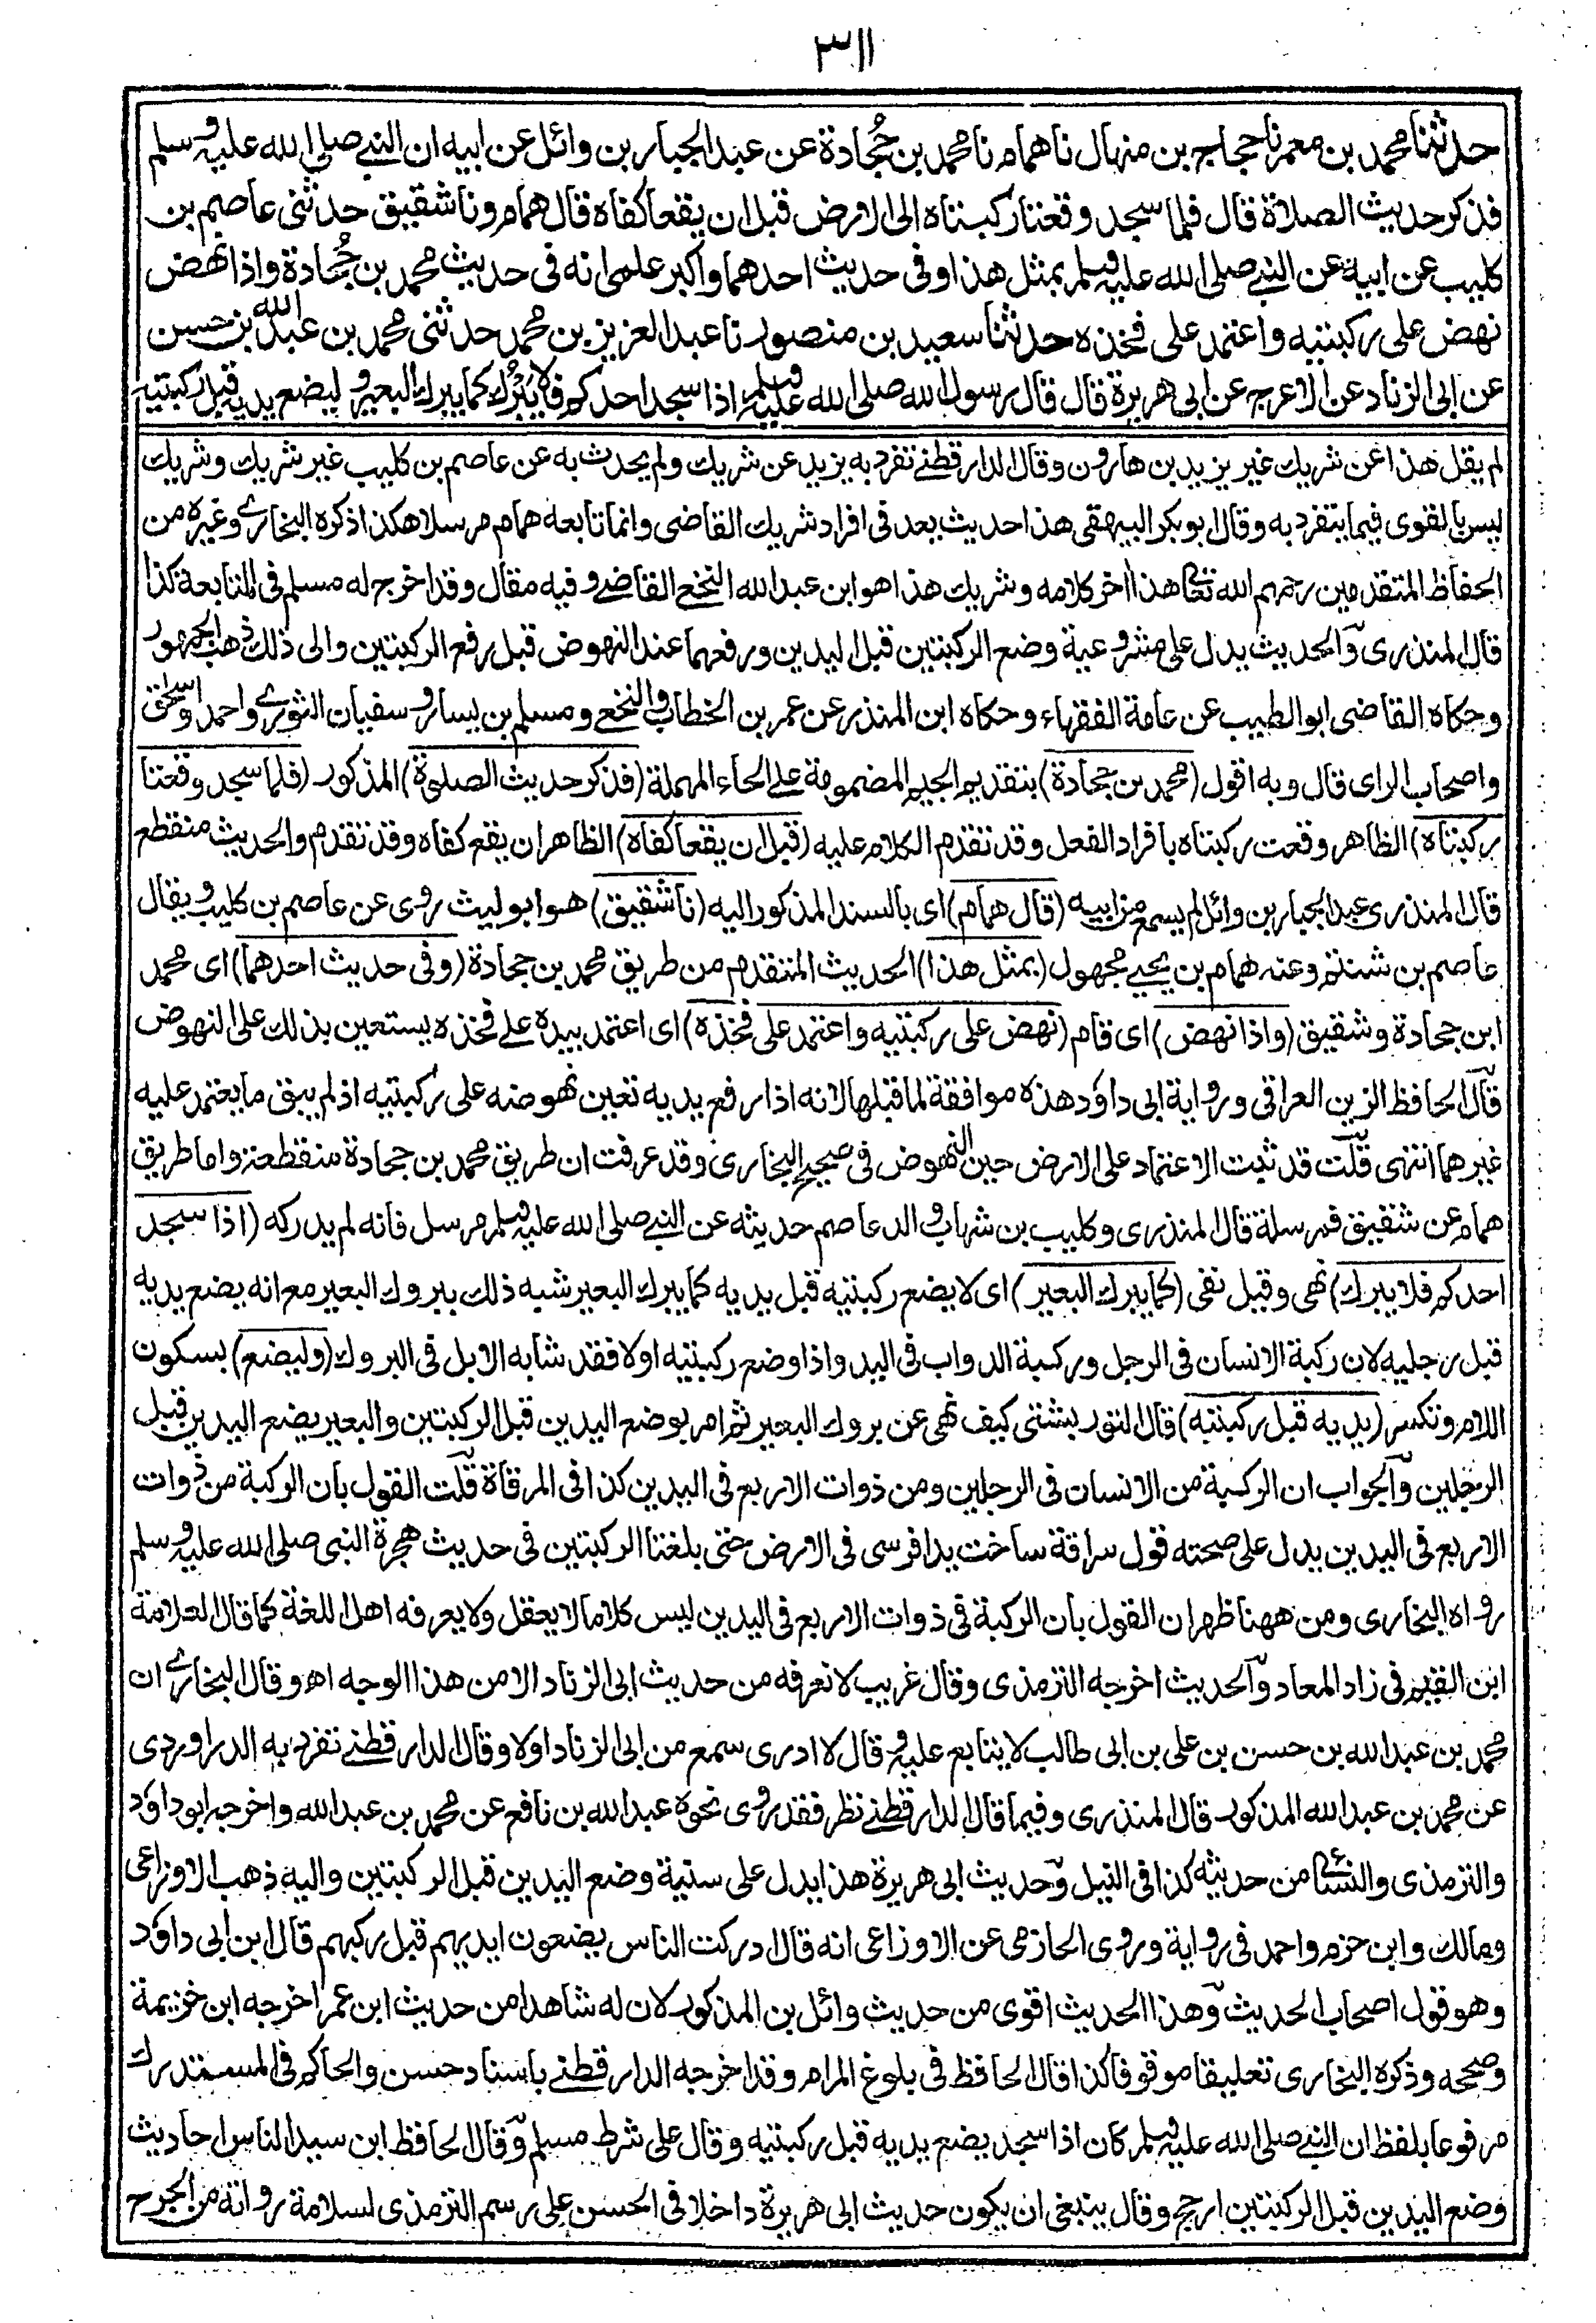 ٣١١
حدثنا محمد بن معمر نا حجاج بن منهال نا همام نا محمد بن جُحادة عن عبد الجبار بن وائل عن ابيه ان النبي صلى الله عليه وسلم
فذكر حديث الصلاة قال فلما سجد وقعتا ركبتاه الى الارض قبل ان يقعا كفاه قال همام ونا شقيق حدثنى عاصم بن
كليب عن ابيه عن النبي صلى الله عليه وسلم بمثل هذا وفى حديث احدهما واكبر علمى انه فى حديث محمد بن جُحادة واذا نهض
نهض على ركبتيه واعتمد على فخذه حدثنا سعيد بن منصور نا عبد العزيز بن محمد حدثنى محمد بن عبد الله بن حسن
عن ابى الزناد عن الاعرج عن ابى هريرة قال قال رسول الله صلى الله عليه وسلم اذا سجد احدكم فلا يَبْرُك كما يبرك البعير وليضع يديه قبل ركبتيه
لم يقل هذا عن شريك غير يزيد بن هارون وقال الدارقطنے تفرد به يزيد عن شريك ولم يحدث به عن عاصم بن كليب غير شريك وشريك
ليس بالقوى فيما يتفرد به وقال ابو بكر البيهقى هذا حديث يعد فى افراد شريك القاضى وانما تابعه همام مرسلا هكذا ذكره البخارے وغيره من
الحفاظ المتقدمين رحمهم الله تعا هذا اٰخر كلامه وشريك هذا هو ابن عبد الله النخعے القاضے وفيه مقال وقد اخرج له مسلم فى المتابعة كذا
قال المنذرى والحديث يدل على مشروعية وضع الركبتين قبل اليدين ورفعهما عند النهوض قبل رفع الركبتين والى ذلك ذهب الجمهور
وحكاه القاضى ابو الطيب عن عامة الفقهاء وحكاه ابن المنذر عن عمر بن الخطاب والنخعے ومسلم بن يسار وسفيان الثورے واحمد واسحٰق
واصحاب الراى قال وبه اقول (محمد بن جحادة) بتقديم الجيم المضمومة علے الحاء المهملة (فذكر حديث الصلوة) المذكور (فلما سجد وقعتا
ركبتاه) الظاهر وقعت ركبتاه بافراد الفعل وقد تقدم الكلام عليه (قبل ان يقعا كفاه) الظاهر ان يقع كفاه وقد تقدم والحديث منقطع
قال المنذرى عبد الجبار بن وائل لم يسمع من ابيه (قال همام) اى بالسند المذكور اليه (نا شقيق) هو ابو ليث روى عن عاصم بن كليب ويقال
عاصم بن شنتم وعنه همام بن يحيے مجهول (بمثل هذا) الحديث المتقدم من طريق محمد بن جحادة (وفى حديث احدهما) اى محمد
ابن جحادة وشقيق (واذا نهض) اى قام (نهض على ركبتيه واعتمد على فخذه) اى اعتمد بيده علے فخذه يستعين بذلك على النهوض
قال الحافظ الزين العراقى ورواية ابى داؤد هذه موافقة لما قبلها لانه اذا رفع يديه تعين نهوضه على ركبتيه اذ لم يبق ما يعتمد عليه
غيرهما انتهى قلت قد ثبت الاعتماد على الارض حين النهوض فى صحيح البخارى وقد عرفت ان طريق محمد بن جحادة منقطعة واما طريق
همام عن شقيق فمرسلة قال المنذرى وكليب بن شهاب والد عاصم حديثه عن النبي صلى الله عليه وسلم مرسل فانه لم يدركه (اذا سجد
احدكم فلا يبرك) نهى وقيل نفى (كما يبرك البعير) اى لا يضع ركبتيه قبل يديه كما يبرك البعير شبه ذلك ببروك البعير مع انه يضع يديه
قبل رجليه لان ركبة الانسان فى الرجل وركبة الدواب فى اليد واذا وضع ركبتيه اولا فقد شابه الابل فى البروك (وليضع) بسكون
اللام وتكسر (يديه قبل ركبتيه) قال التوربشتى كيف نهى عن بروك البعير ثم امر بوضع اليدين قبل الركبتين والبعير يضع اليدين قبل
الرجلين والجواب ان الركبة من الانسان فى الرجلين ومن ذوات الاربع فى اليدين كذا فى المرقاة قلت القول بان الركبة من ذوات
الاربع فى اليدين يدل على صحته قول سراقة ساخت يدا فرسى فى الارض حتى بلغتا الركبتين فى حديث هجرة النبى صلى الله عليه وسلم
رواه البخارى ومن ههنا ظهر ان القول بان الركبة فى ذوات الاربع فى اليدين ليس كلاما لا يعقل ولا يعرفه اهل اللغة كما قال العلامة
ابن القيم فى زاد المعاد والحديث اخرجه الترمذى وقال غريب لا نعرفه من حديث ابى الزناد الا من هذا الوجه اھ وقال البخارے ان
محمد بن عبد الله بن حسن بن على بن ابى طالب لا يتابع عليه وقال لا ادرى سمع من ابى الزناد او لا وقال الدارقطنے تفرد به الدراوردى
عن محمد بن عبد الله المذكور قال المنذرى وفيما قال الدارقطنے نظر فقد روى نحوه عبد الله بن نافع عن محمد بن عبد الله واخرجه ابو داؤد
والترمذى والنسائے من حديثه كذا فى النيل وحديث ابى هريرة هذا يدل على سنية وضع اليدين قبل الركبتين واليه ذهب الاوزاعى
ومالك وابن حزم واحمد فى رواية وروى الحازمى عن الاوزاعى انه قال ادركت الناس يضعون ايديهم قبل ركبهم قال ابن ابى داؤد
وهو قول اصحاب الحديث وهذا الحديث اقوى من حديث وائل بن المذكور لان له شاهدا من حديث ابن عمر اخرجه ابن خزيمة
وصححه وذكره البخارى تعليقا موقوفا كذا قال الحافظ فى بلوغ المرام وقد اخرجه الدارقطنے باسناد حسن والحاكم فى المستدرك
مرفوعا بلفظ ان النبي صلى الله عليه وسلم كان اذا سجد يضع يديه قبل ركبتيه وقال على شرط مسلم وقال الحافظ ابن سيد الناس احاديث
وضع اليدين قبل الركبتين ارجح وقال ينبغى ان يكون حديث ابى هريرة داخلا فى الحسن على رسم الترمذى لسلامة رواته من الجرح